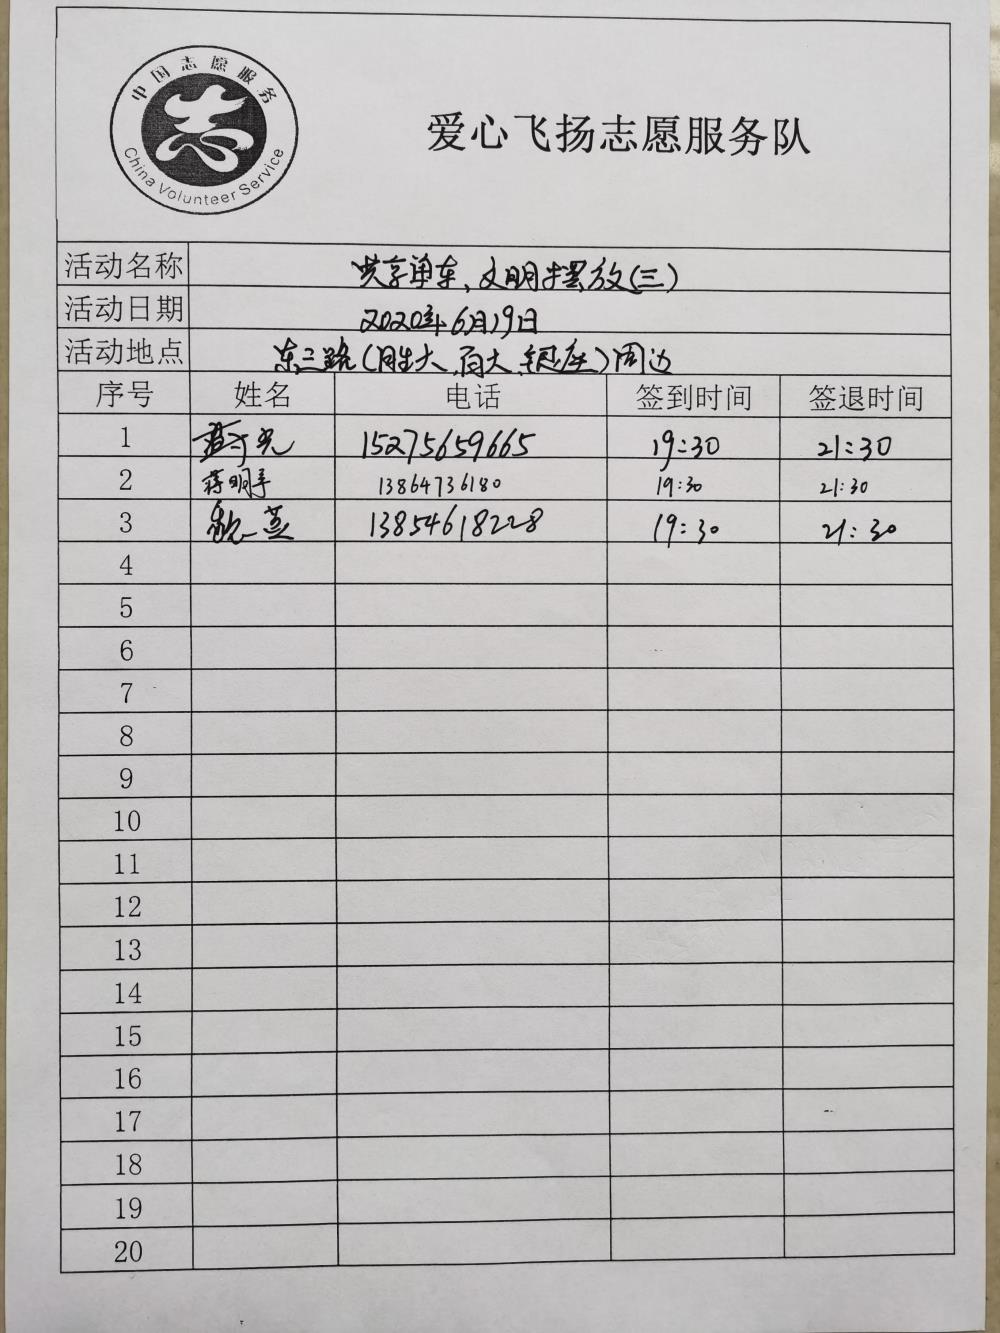 中国志愿服务
China Volunteer Service
爱心飞扬志愿服务队
活动名称 共享单车、文明摆放(三)
活动日期 2020年6月19日
活动地点 东三路(胜大、百大、银座)周边
序号 姓名 电话 签到时间 签退时间
1 15275659665 19:30 21:30
2 蒋明 13864736180 19:30 21:30
3 魏燕 13854618228 19:30 21:30
4
5
6
7
8
9
10
11
12
13
14
15
16
17
18
19
20